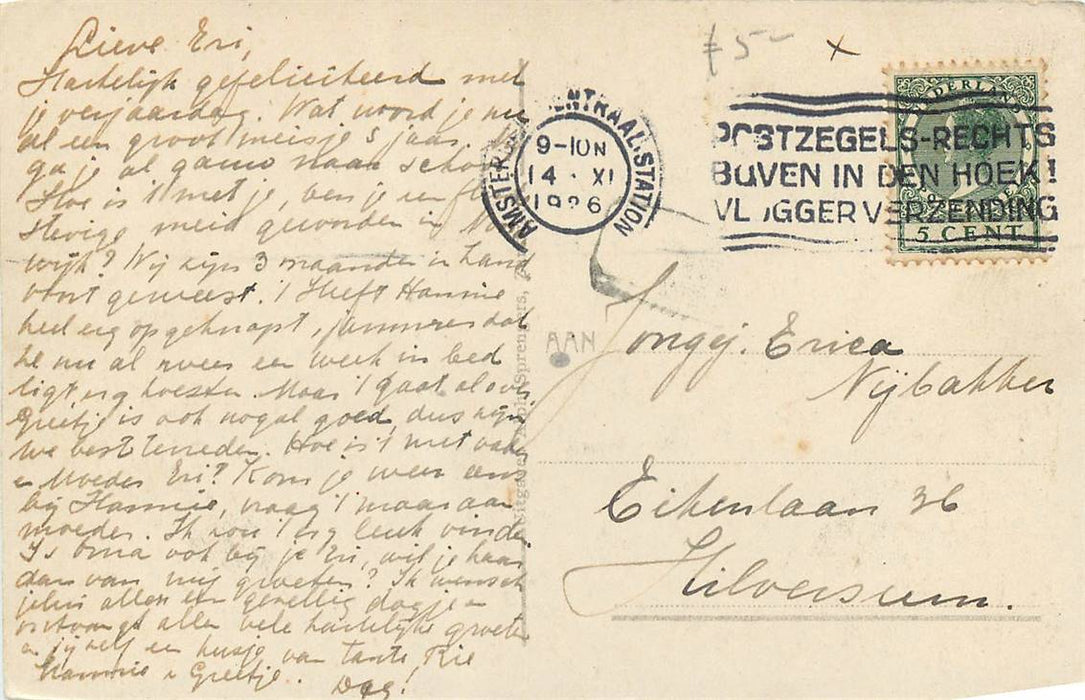 Lieve Eri,
Hartelijk gefeliciteerd met
je verjaardag. Wat word je nu
al een groot meisje 5 jaar,
ga je al gauw naar school
Hoe is 't met je, ben je een
stevige meid geworden in
wijk? Wij zijn 3 maanden in Zand
voort geweest. 't Heeft Hannie
heel erg opgeknapt, jammer dat
ze nu al weer een week in bed
ligt, erg hoesten. Maar 't gaat al over
Greetje is ook nogal goed, dus zijn
we best tevreden. Hoe is 't met vader
en Moeder Eri? Kom je weer eens
bij Hannie, vraag 't maar aan
moeder. Ik zou 't erg leuk vinden
Is oma ook bij je Eri, wil je haar
dan van mij groeten? Ik wensch
jelui allen een gezellig dagje en
ontvangt allen vele hartelijke groeten
en jijzelf en kusje van tante Rie
Hannie en Greetje. Dag!
Sprengers,
f 5-
x
AMSTERDAM CENTRAAL STATION
9-10N
14 XI
1926
POSTZEGELS-RECHTS
BOVEN IN DEN HOEK!
VLUGGER VERZENDING
NEDERLAND
5 CENT
AAN
Jongej. Erica
Nijbakker
Eikenlaan 36
Hilversum.